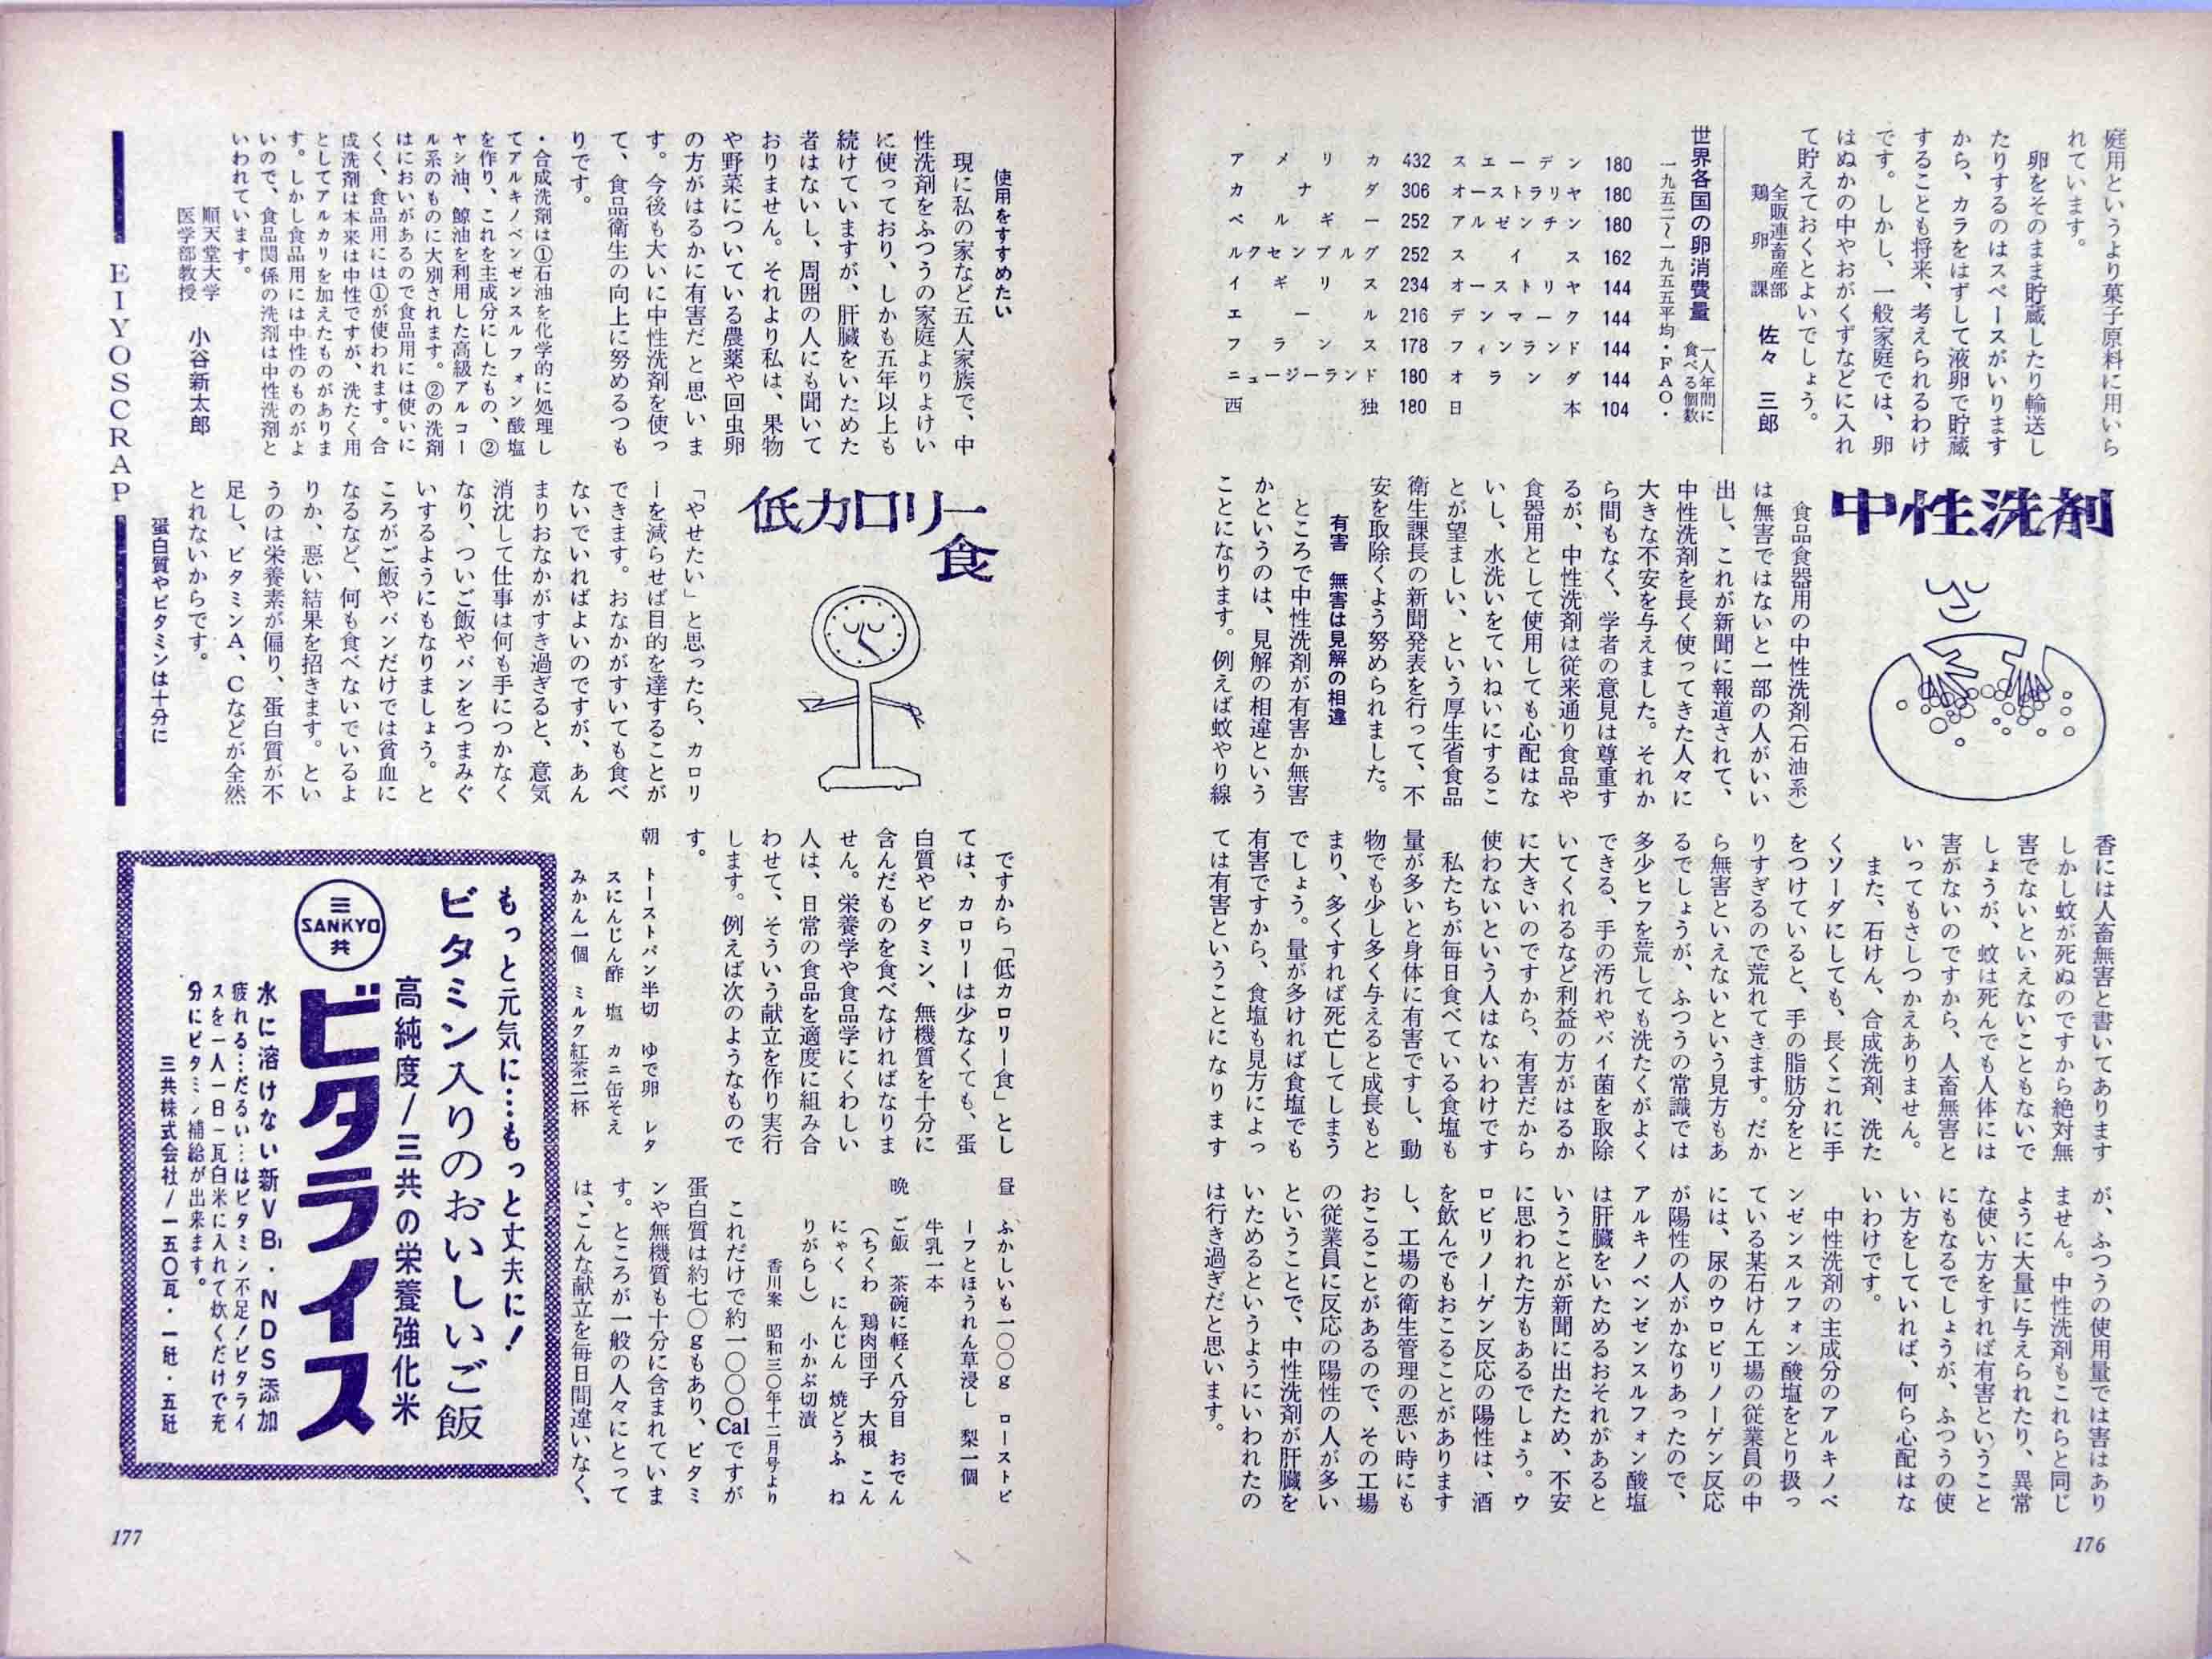 庭用というより菓子原料に用いら
れています。
卵をそのまま貯蔵したり輸送し
たりするのはスペースがいります
から、カラをはずして液卵で貯蔵
することも将来、考えられるわけ
です。しかし、一般家庭では、卵
はぬかの中やおがくずなどに入れ
て貯えておくとよいでしょう。
全販連畜産部
鶏卵課
佐々三郎
世界各国の卵消費量
一人年間に
食べる個数
一九五二〜一九五五平均・FAO・
アメリカ 432 スエーデン 180
カナダ 306 オーストラリヤ 180
ベルギー 252 アルゼンチン 180
ルクセンブルグ 252 スイス 162
イギリス 234 オーストリヤ 144
エール 216 デンマーク 144
フランス 178 フィンランド 144
ニュージーランド 180 オランダ 144
西独 180 日本 104
中性洗剤
食品食器用の中性洗剤(石油系)
は無害ではないと一部の人がいい
出し、これが新聞に報道されて、
中性洗剤を長く使ってきた人々に
大きな不安を与えました。それか
ら間もなく、学者の意見は尊重す
るが、中性洗剤は従来通り食品や
食器用として使用しても心配はな
いし、水洗いをていねいにするこ
とが望ましい、という厚生省食品
衛生課長の新聞発表を行って、不
安を取除くよう努められました。
有害 無害は見解の相違
ところで中性洗剤が有害か無害
かというのは、見解の相違という
ことになります。例えば蚊やり線
香には人畜無害と書いてあります
しかし蚊が死ぬのですから絶対無
害でないといえないこともないで
しょうが、蚊は死んでも人体には
害がないのですから、人畜無害と
いってもさしつかえありません。
また、石けん、合成洗剤、洗た
くソーダにしても、長くこれに手
をつけていると、手の脂肪分をと
りすぎるので荒れてきます。だか
ら無害といえないという見方もあ
るでしょうが、ふつうの常識では
多少ヒフを荒しても洗たくがよく
できる、手の汚れやバイ菌を取除
いてくれるなど利益の方がはるか
に大きいのですから、有害だから
使わないという人はないわけです
私たちが毎日食べている食塩も
量が多いと身体に有害ですし、動
物でも少し多く与えると成長もと
まり、多くすれば死亡してしまう
でしょう。量が多ければ食塩でも
有害ですから、食塩も見方によっ
ては有害ということになります
が、ふつうの使用量では害はあり
ません。中性洗剤もこれらと同じ
ように大量に与えられたり、異常
な使い方をすれば有害ということ
にもなるでしょうが、ふつうの使
い方をしていれば、何ら心配はな
いわけです。
中性洗剤の主成分のアルキノベ
ンゼンスルフォン酸塩をとり扱っ
ている某石けん工場の従業員の中
には、尿のウロビリノーゲン反応
が陽性の人がかなりあったので、
アルキノベンゼンスルフォン酸塩
は肝臓をいためるおそれがあると
いうことが新聞に出たため、不安
に思われた方もあるでしょう。ウ
ロビリノーゲン反応の陽性は、酒
を飲んでもおこることがあります
し、工場の衛生管理の悪い時にも
おこることがあるので、その工場
の従業員に反応の陽性の人が多い
ということで、中性洗剤が肝臓を
いためるというようにいわれたの
は行き過ぎだと思います。
176
使用をすすめたい
現に私の家など五人家族で、中
性洗剤をふつうの家庭よりよけい
に使っており、しかも五年以上も
続けていますが、肝臓をいためた
者はないし、周囲の人にも聞いて
おりません。それより私は、果物
や野菜についている農薬や回虫卵
の方がはるかに有害だと思いま
す。今後も大いに中性洗剤を使っ
て、食品衛生の向上に努めるつも
りです。
・合成洗剤は①石油を化学的に処理し
てアルキノベンゼンスルフォン酸塩
を作り、これを主成分にしたもの、②
ヤシ油、鯨油を利用した高級アルコー
ル系のものに大別されます。②の洗剤
はにおいがあるので食品用には使いに
くく、食品用には①が使われます。合
成洗剤は本来は中性ですが、洗たく用
としてアルカリを加えたものがありま
す。しかし食品用には中性のものがよ
いので、食品関係の洗剤は中性洗剤と
いわれています。
順天堂大学
医学部教授
小谷新太郎
EIYOSCRAP
低カロリー食
「やせたい」と思ったら、カロリ
ーを減らせば目的を達することが
できます。おなかがすいても食べ
ないでいればよいのですが、あん
まりおなかがすき過ぎると、意気
消沈して仕事は何も手につかなく
なり、ついご飯やパンをつまみぐ
いするようにもなりましょう。と
ころがご飯やパンだけでは貧血に
なるなど、何も食べないでいるよ
りか、悪い結果を招きます。とい
うのは栄養素が偏り、蛋白質が不
足し、ビタミンA、Cなどが全然
とれないからです。
蛋白質やビタミンは十分に
ですから「低カロリー食」とし
ては、カロリーは少なくても、蛋
白質やビタミン、無機質を十分に
含んだものを食べなければなりま
せん。栄養学や食品学にくわしい
人は、日常の食品を適度に組み合
わせて、そういう献立を作り実行
します。例えば次のようなもので
す。
朝 トーストパン半切 ゆで卵 レタ
スにんじん酢 塩 カニ缶そえ
みかん一個 ミルク紅茶二杯
昼 ふかしいも一〇〇g ローストビ
ーフとほうれん草浸し 梨一個
牛乳一本
晩 ご飯 茶碗に軽く八分目 おでん
(ちくわ 鶏肉団子 大根 こん
にゃく にんじん 焼どうふ ね
りがらし) 小かぶ切漬
香川案 昭和三〇年十二月号より
これだけで約一〇〇〇Calですが
蛋白質は約七〇gもあり、ビタミ
ンや無機質も十分に含まれていま
す。ところが一般の人々にとって
は、こんな献立を毎日間違いなく、
もっと元気に…もっと丈夫に!
ビタミン入りのおいしいご飯
高純度/三共の栄養強化米
三
SANKYO
共
ビタライス
水に溶けない新VB₁・NDS添加
疲れる…だるい…はビタミン不足!ビタライ
スを一人一日一瓦白米に入れて炊くだけで充
分にビタミン補給が出来ます。
三共株式会社/一五〇瓦・一瓩・五瓩
177